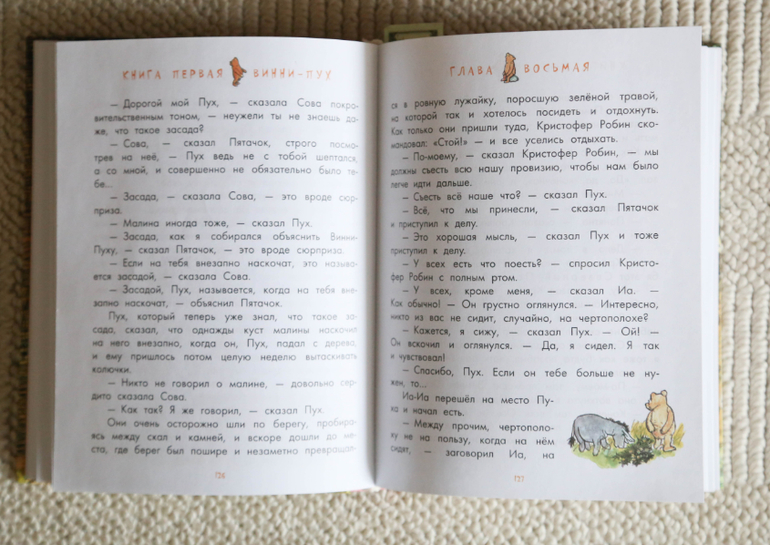 КНИГА ПЕРВАЯ ВИННИ-ПУХ
— Дорогой мой Пух, — сказала Сова покро-
вительственным тоном, — неужели ты не знаешь да-
же, что такое засада?
— Сова, — сказал Пятачок, строго посмо-
трев на неё, — Пух ведь не с тобой шептался,
а со мной, и совершенно не обязательно было те-
бе...
— Засада, — сказала Сова, — это вроде сюр-
приза.
— Малина иногда тоже, — сказал Пух.
— Засада, как я собирался объяснить Винни-
Пуху, — сказал Пятачок, — это вроде сюрприза.
— Если на тебя внезапно наскочат, это называ-
ется засадой, — сказала Сова.
— Засадой, Пух, называется, когда на тебя вне-
запно наскочат, — объяснил Пятачок.
Пух, который теперь уже знал, что такое за-
сада, сказал, что однажды куст малины наскочил
на него внезапно, когда он, Пух, падал с дерева,
и ему пришлось потом целую неделю вытаскивать
колючки.
— Никто не говорил о малине, — довольно сер-
дито сказала Сова.
— Как так? Я же говорил, — сказал Пух.
Они очень осторожно шли по берегу, пробира-
ясь между скал и камней, и вскоре дошли до ме-
ста, где берег был пошире и незаметно превращал-
126
ГЛАВА ВОСЬМАЯ
ся в ровную лужайку, поросшую зелёной травой,
на которой так и хотелось посидеть и отдохнуть.
Как только они пришли туда, Кристофер Робин ско-
мандовал: «Стой!» — и все уселись отдыхать.
— По-моему, — сказал Кристофер Робин, — мы
должны съесть всю нашу провизию, чтобы нам было
легче идти дальше.
— Съесть всё наше что? — сказал Пух.
— Всё, что мы принесли, — сказал Пятачок
и приступил к делу.
— Это хорошая мысль, — сказал Пух и тоже
приступил к делу.
— У всех есть что поесть? — спросил Кристо-
фер Робин с полным ртом.
— У всех, кроме меня, — сказал Иа. —
Как обычно! — Он грустно оглянулся. — Интересно,
никто из вас не сидит, случайно, на чертополохе?
— Кажется, я сижу, — сказал Пух. — Ой! —
Он вскочил и оглянулся. — Да, я сидел. Я так
и чувствовал!
— Спасибо, Пух. Если он тебе больше не ну-
жен, то...
Иа-Иа перешёл на место Пу-
ха и начал есть.
— Между прочим, чертополо-
ху не на пользу, когда на нём
сидят, — заговорил Иа, на
127